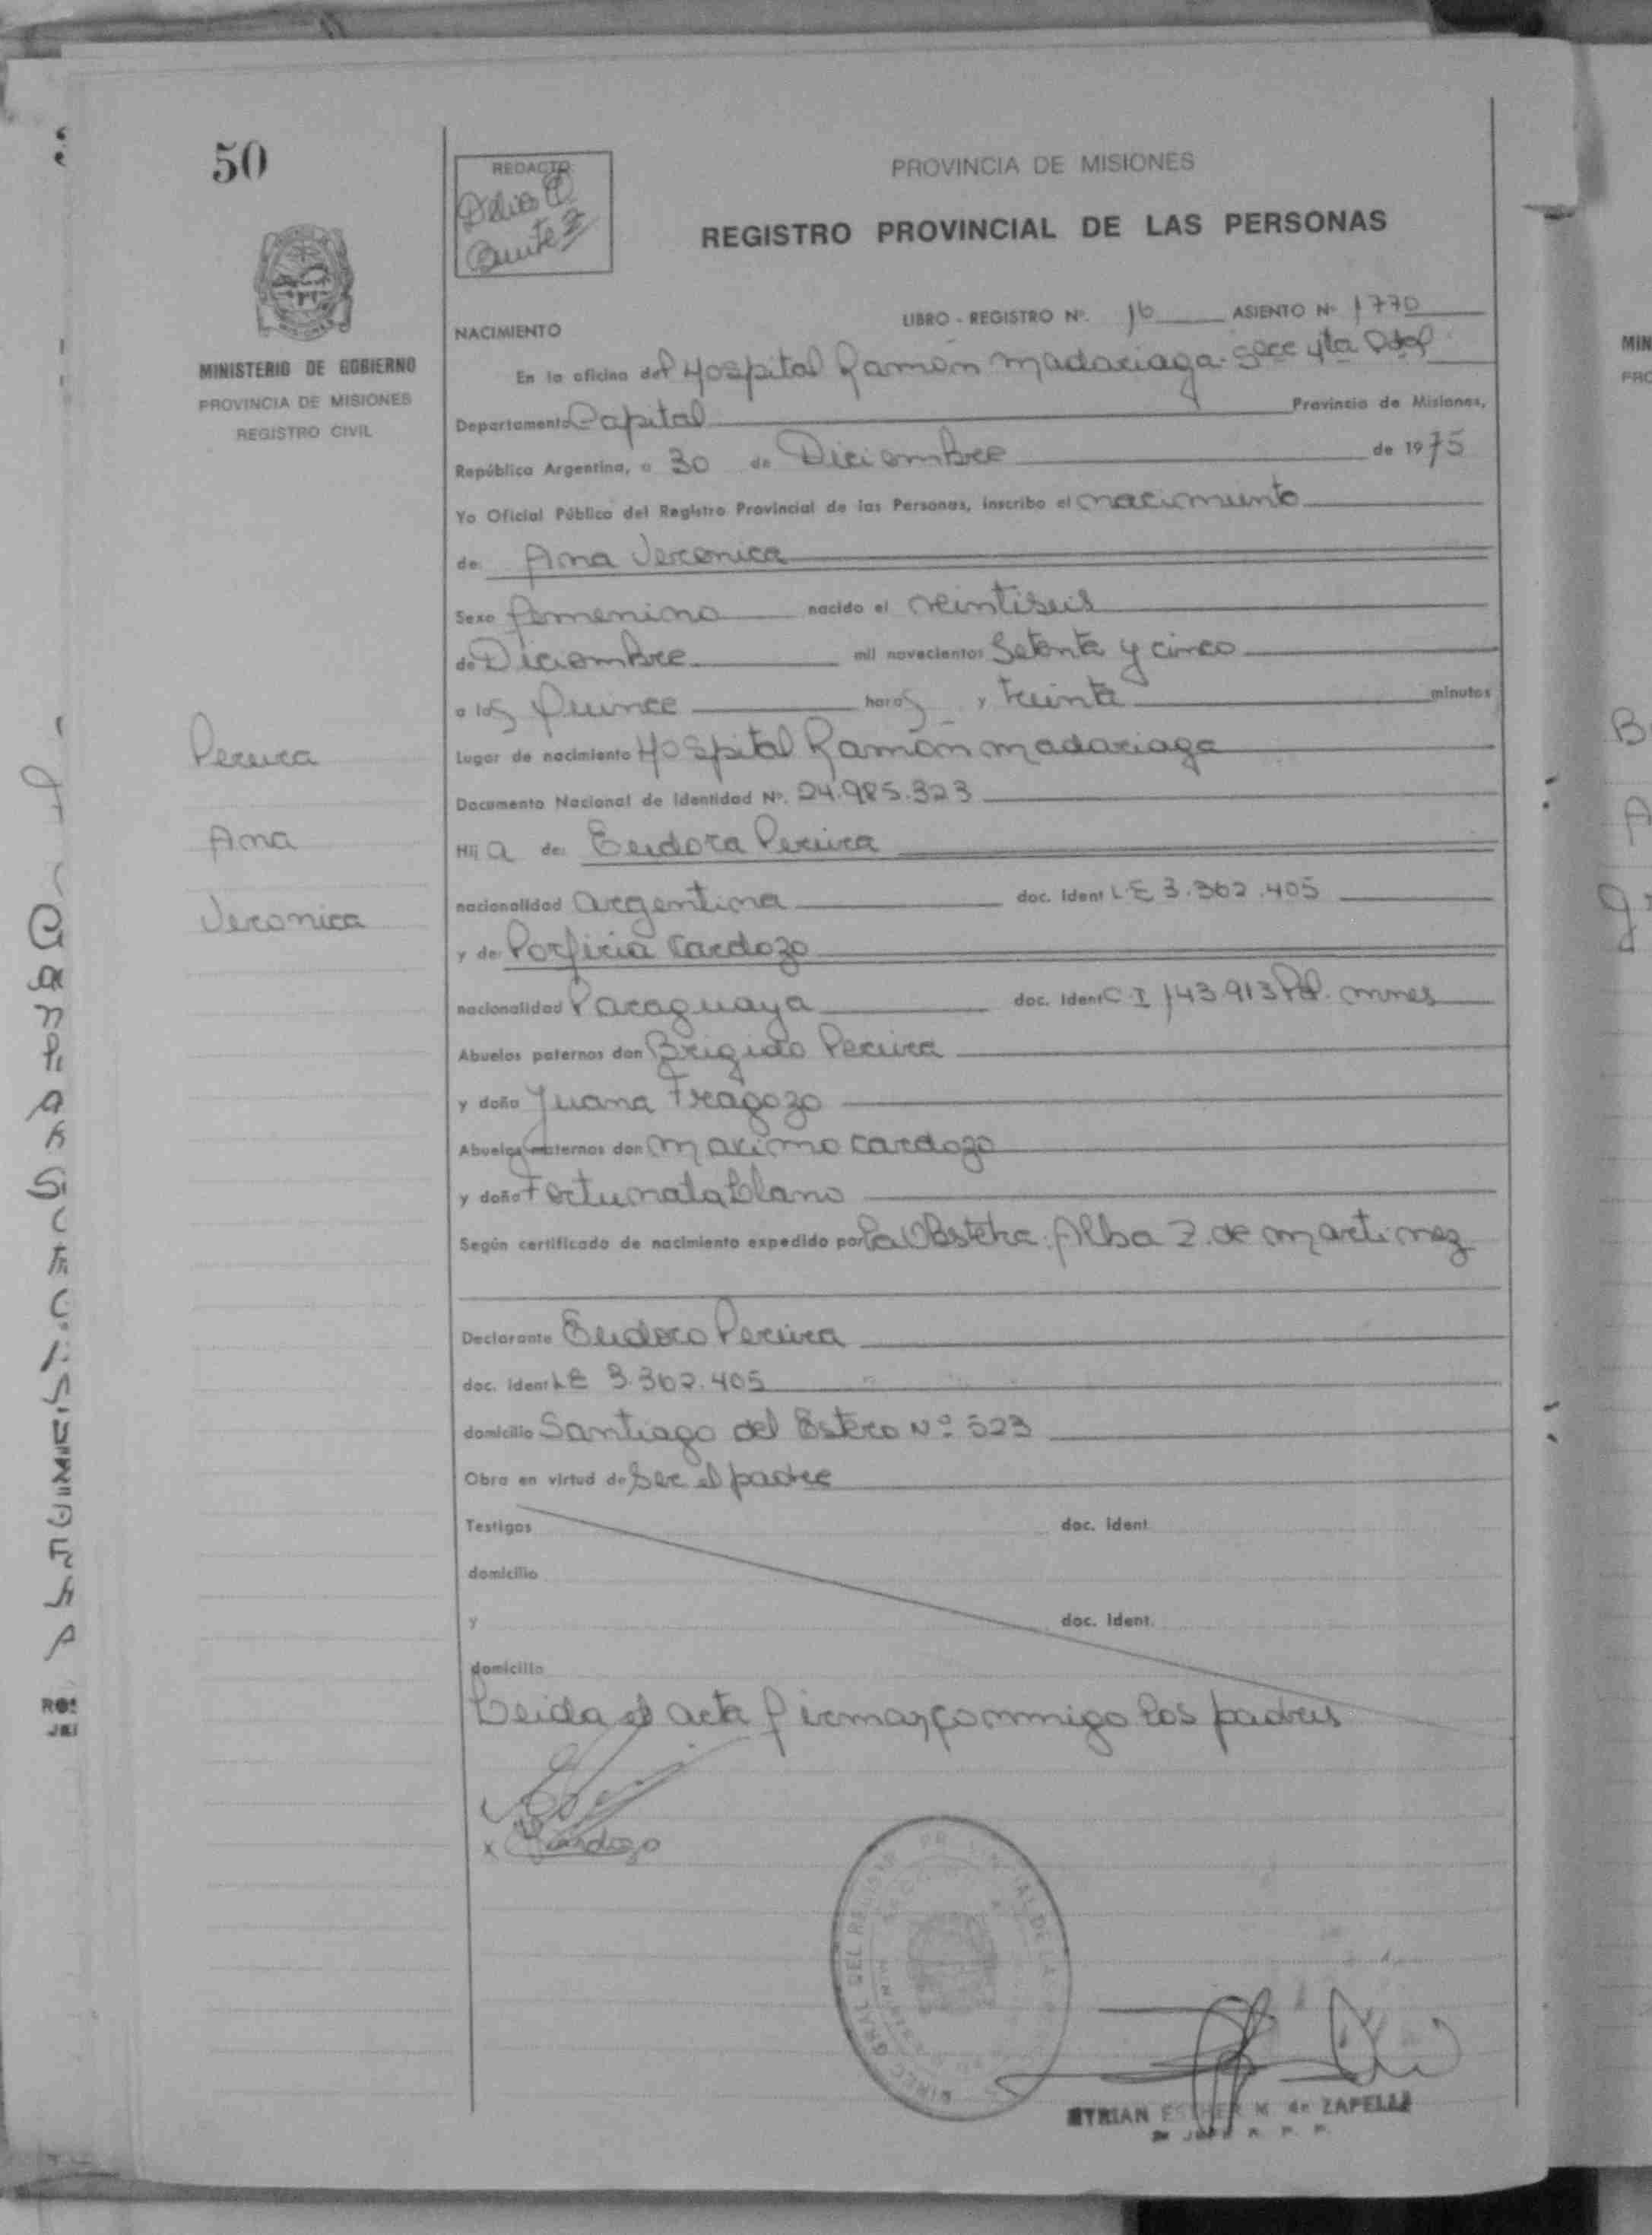 50
MINISTERIO DE GOBIERNO
PROVINCIA DE MISIONES
REGISTRO CIVIL
Pereira
Ana
Veronica
REDACTO
PROVINCIA DE MISIONES
REGISTRO PROVINCIAL DE LAS PERSONAS
LIBRO - REGISTRO Nº. 16 ASIENTO Nº 1770
NACIMIENTO
En la oficina del Hospital Ramón Madariaga - Secc 4ta Pdas
Departamento Capital Provincia de Misiones,
República Argentina, a 30 de Diciembre de 1975
Yo Oficial Público del Registro Provincial de las Personas, inscribo el nacimiento
de: Ana Veronica
Sexo femenino nacido el veintiseis
de Diciembre mil novecientos Setenta y cinco
a las quince horas y treinta minutos
Lugar de nacimiento Hospital Ramón Madariaga
Documento Nacional de Identidad Nº. 24.985.323
Hija de: Eudora Pereira
nacionalidad argentina doc. Ident L.E 3.362.405
y de Porfiria Cardozo
nacionalidad Paraguaya doc. Ident C.I 143.913 Pol. mnes
Abuelos paternos don Brigido Pereira
y doña Juana Fragozo
Abuelos maternos don Maximo Cardozo
y doña Fortunata Llano
Según certificado de nacimiento expedido por la Obstetra: Alba Z. de Martinez
Declarante Eudoro Pereira
doc. Ident L E 3.362.405
domicilio Santiago del Estero Nº 523
Obra en virtud de Ser el padre
Testigos doc. Ident.
domicilio
y doc. Ident.
domicilio
Leida el acta firman conmigo los padres
x Cardozo
MYRIAN ESTHER M. de ZAPELLI